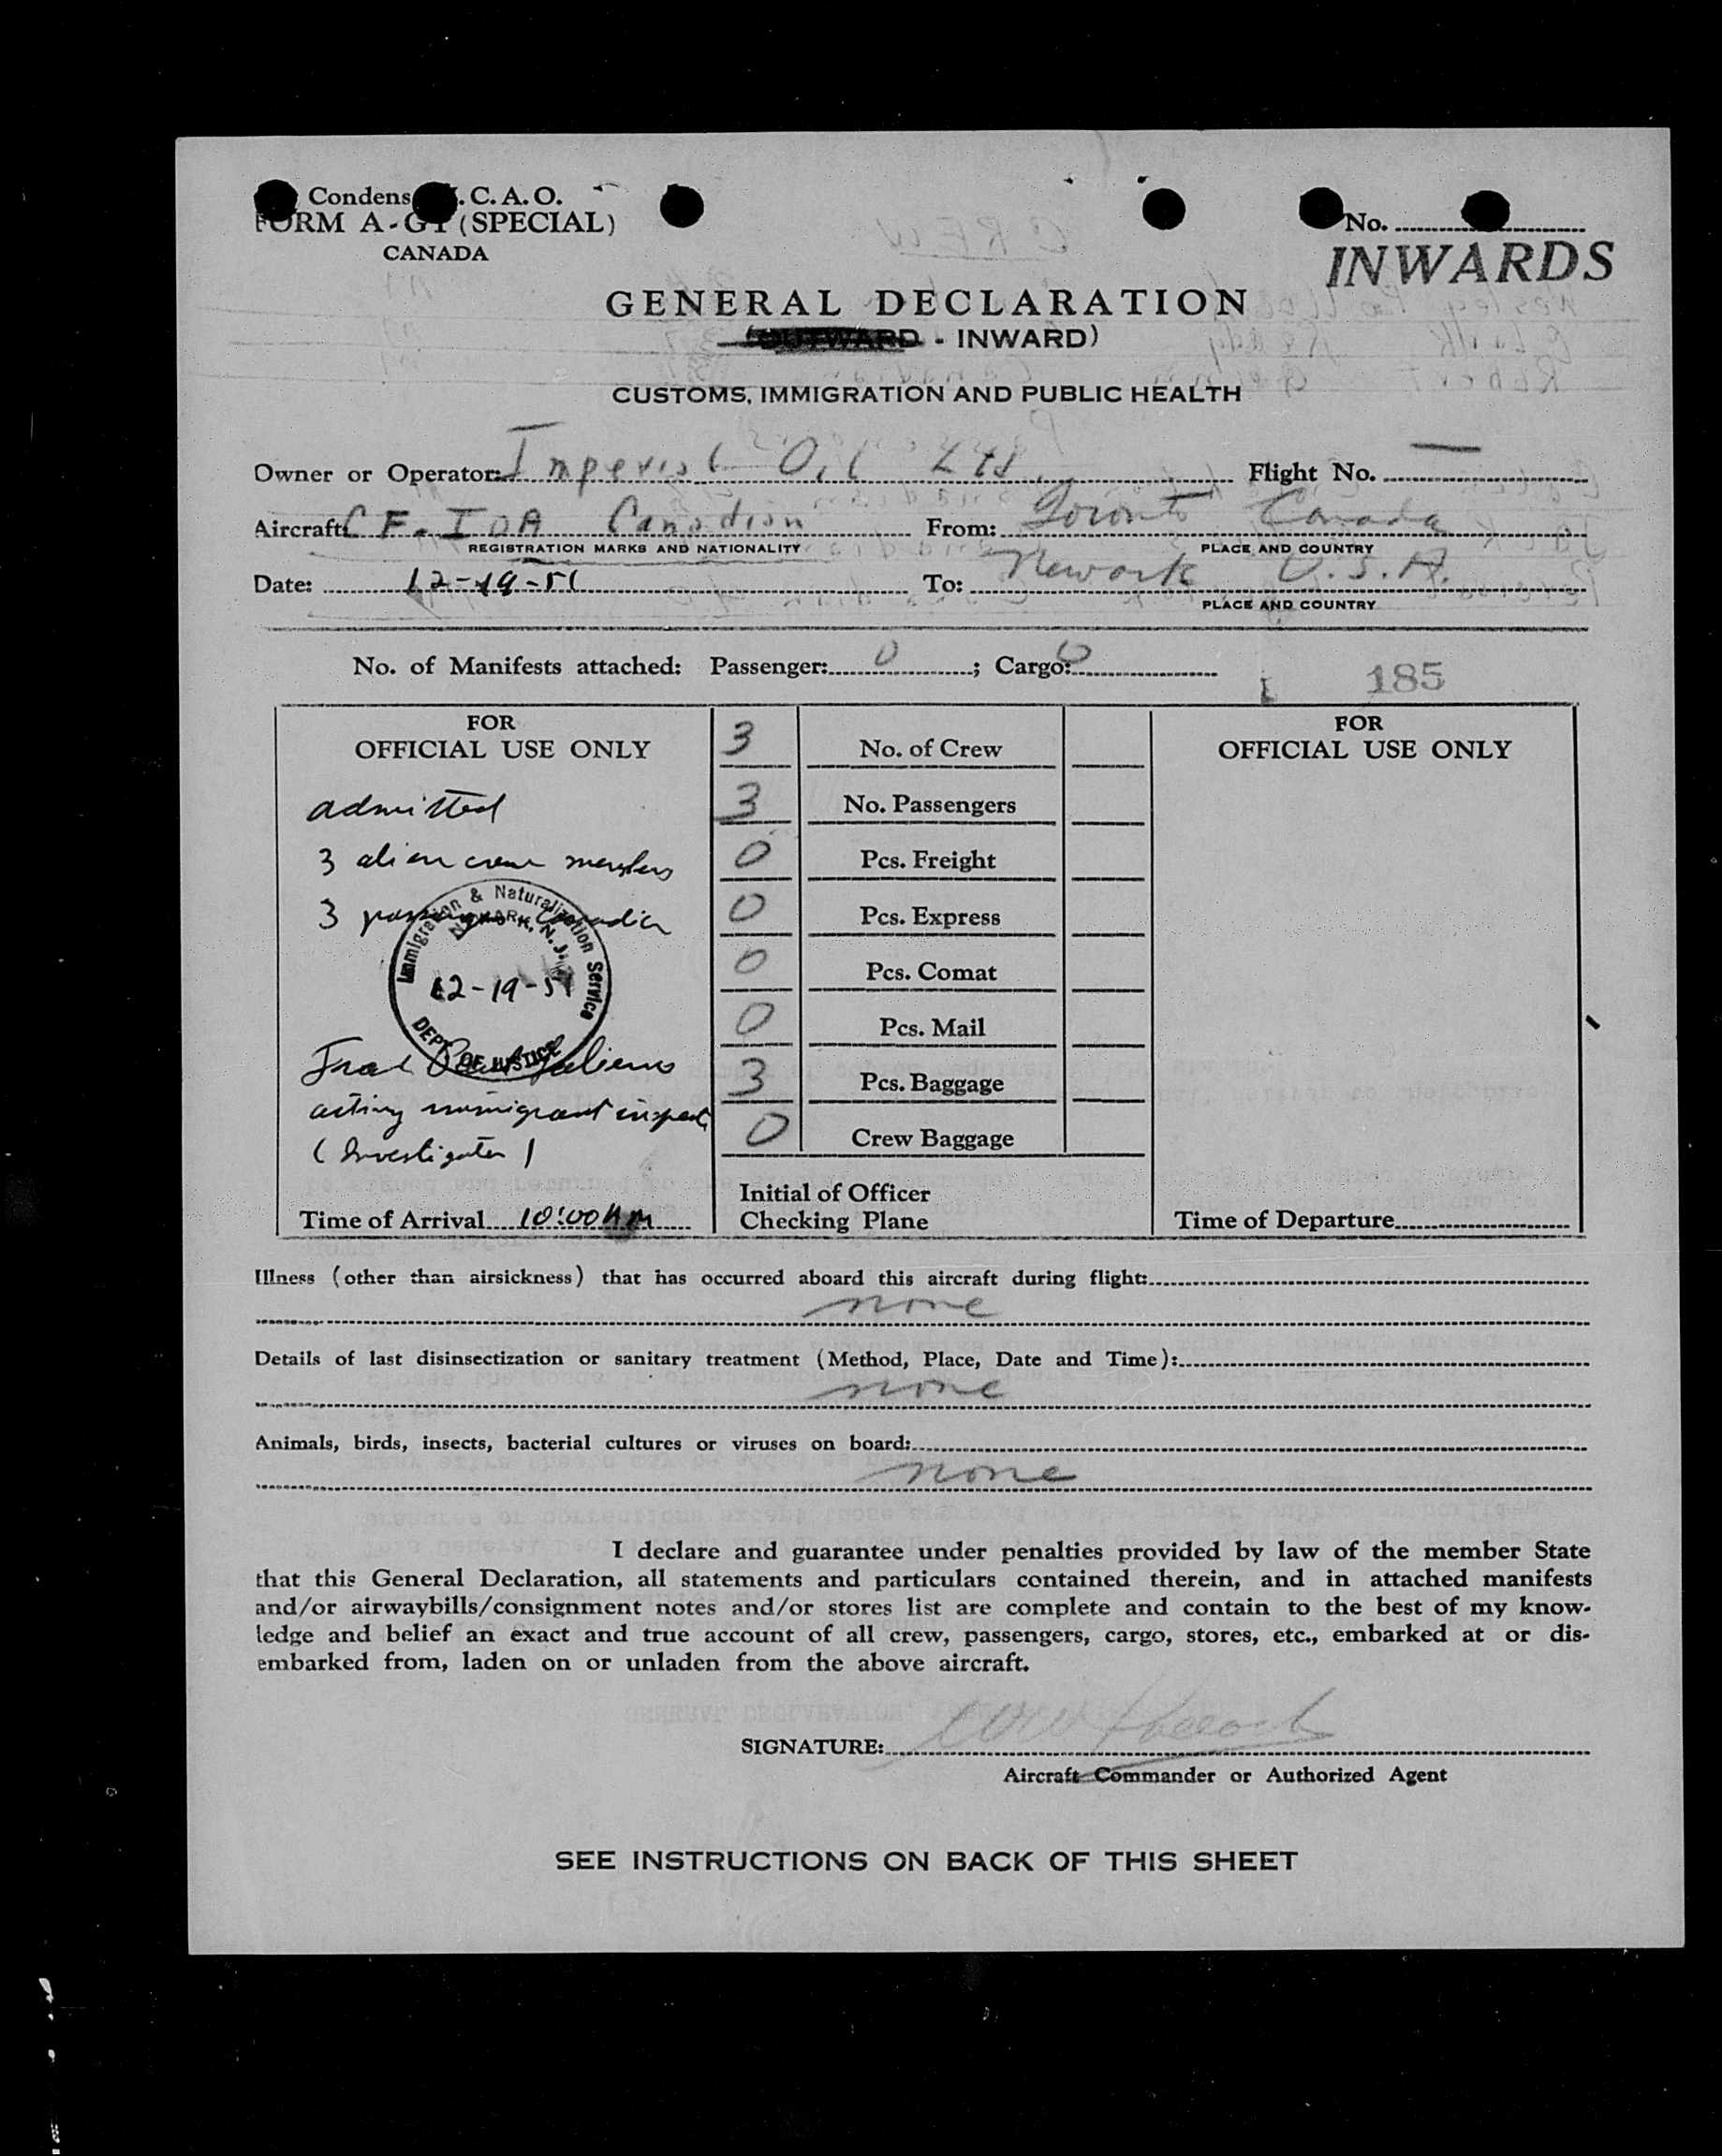 Condens . C. A. O.
FORM A-G1 (SPECIAL)
CANADA
No.
INWARDS
GENERAL DECLARATION
(OUTWARD - INWARD)
CUSTOMS, IMMIGRATION AND PUBLIC HEALTH
Owner or Operator: Imperial Oil Ltd. Flight No. —
Aircraft: CF-IOA Canadian From: Toronto Canada
REGISTRATION MARKS AND NATIONALITY PLACE AND COUNTRY
Date: 12-19-51 To: Newark U.S.A.
PLACE AND COUNTRY
No. of Manifests attached: Passenger: 0; Cargo: 0
185
FOR
OFFICIAL USE ONLY
admitted
3 alien crew members
3 Canadian
Immigration & Naturalization Service
NEWARK, N. J.
12-19-51
DEPT. OF JUSTICE
acting immigrant inspect
(Investigator)
Time of Arrival 10:00 AM
3 No. of Crew
3 No. Passengers
0 Pcs. Freight
0 Pcs. Express
0 Pcs. Comat
0 Pcs. Mail
3 Pcs. Baggage
0 Crew Baggage
Initial of Officer
Checking Plane
FOR
OFFICIAL USE ONLY
Time of Departure
Illness (other than airsickness) that has occurred aboard this aircraft during flight:
none
Details of last disinsectization or sanitary treatment (Method, Place, Date and Time):
none
Animals, birds, insects, bacterial cultures or viruses on board:
none
I declare and guarantee under penalties provided by law of the member State
that this General Declaration, all statements and particulars contained therein, and in attached manifests
and/or airwaybills/consignment notes and/or stores list are complete and contain to the best of my know-
ledge and belief an exact and true account of all crew, passengers, cargo, stores, etc., embarked at or dis-
embarked from, laden on or unladen from the above aircraft.
SIGNATURE:
Aircraft Commander or Authorized Agent
SEE INSTRUCTIONS ON BACK OF THIS SHEET